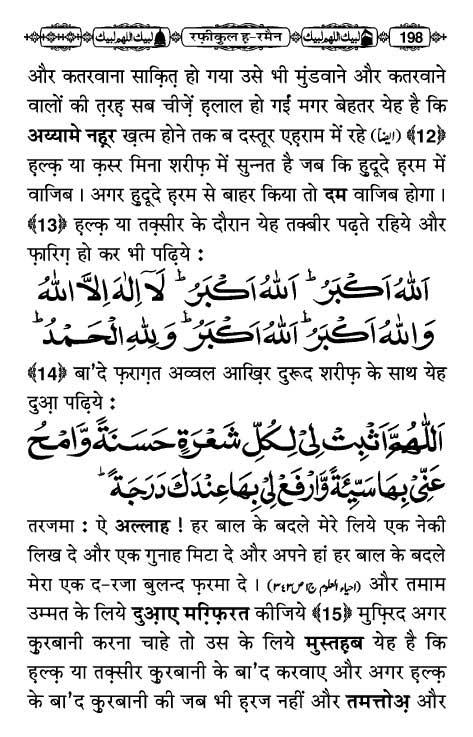 لبیك اللھم لبیك रफ़ीक़ुल ह-रमैन لبیك اللھم لبیك 198
और कतरवाना साक़ित़ हो गया उसे भी मुंडवाने और कतरवाने
वालों की त़रह़ सब चीज़ें ह़लाल हो गईं मगर बेहतर येह है कि
अय्यामे नह़्र ख़त्म होने तक ब दस्तूर एह़राम में रहे (ایضاً) ﴾12﴿
ह़ल्क़ या क़स्र मिना शरीफ़ में सुन्नत है जब कि ह़ुदूदे ह़रम में
वाजिब । अगर ह़ुदूदे ह़रम से बाहर किया तो दम वाजिब होगा ।
﴾13﴿ ह़ल्क़ या तक़्सीर के दौरान येह तक्बीर पढ़ते रहिये और
फ़ारिग़ हो कर भी पढ़िये :
اَللّٰهُ اَكْبَرُ ؕ اَللّٰهُ اَكْبَرُ ؕ لَاۤ اِلٰهَ اِلَّا اللّٰهُ
وَاللّٰهُ اَكْبَرُ ؕ اَللّٰهُ اَكْبَرُ ؕ وَلِلّٰهِ الْحَمْدُ ؕ
﴾14﴿ बा'दे फ़राग़त अव्वल आख़िर दुरूद शरीफ़ के साथ येह
दुआ़ पढ़िये :
اَللّٰهُمَّ اَثْبِتْ لِیْ لِكُلِّ شَعْرَةٍ حَسَنَةً وَّامْحُ
عَنِّیْ بِهَا سَیِّئَةً وَّارْفَعْ لِیْ بِهَا عِنْدَكَ دَرَجَةً ؕ
तरजमा : ऐ अल्लाह ! हर बाल के बदले मेरे लिये एक नेकी
लिख दे और एक गुनाह मिटा दे और अपने हां हर बाल के बदले
मेरा एक द-रजा बुलन्द फ़रमा दे । (احیاء العلوم ج۱ ص۳٤۳) और तमाम
उम्मत के लिये दुआ़ए मग़्फ़िरत कीजिये ﴾15﴿ मुफ़्रिद अगर
क़ुरबानी करना चाहे तो उस के लिये मुस्तह़ब येह है कि
ह़ल्क़ या तक़्सीर क़ुरबानी के बा'द करवाए और अगर ह़ल्क़
के बा'द क़ुरबानी की जब भी ह़रज नहीं और तमत्तोअ़ और